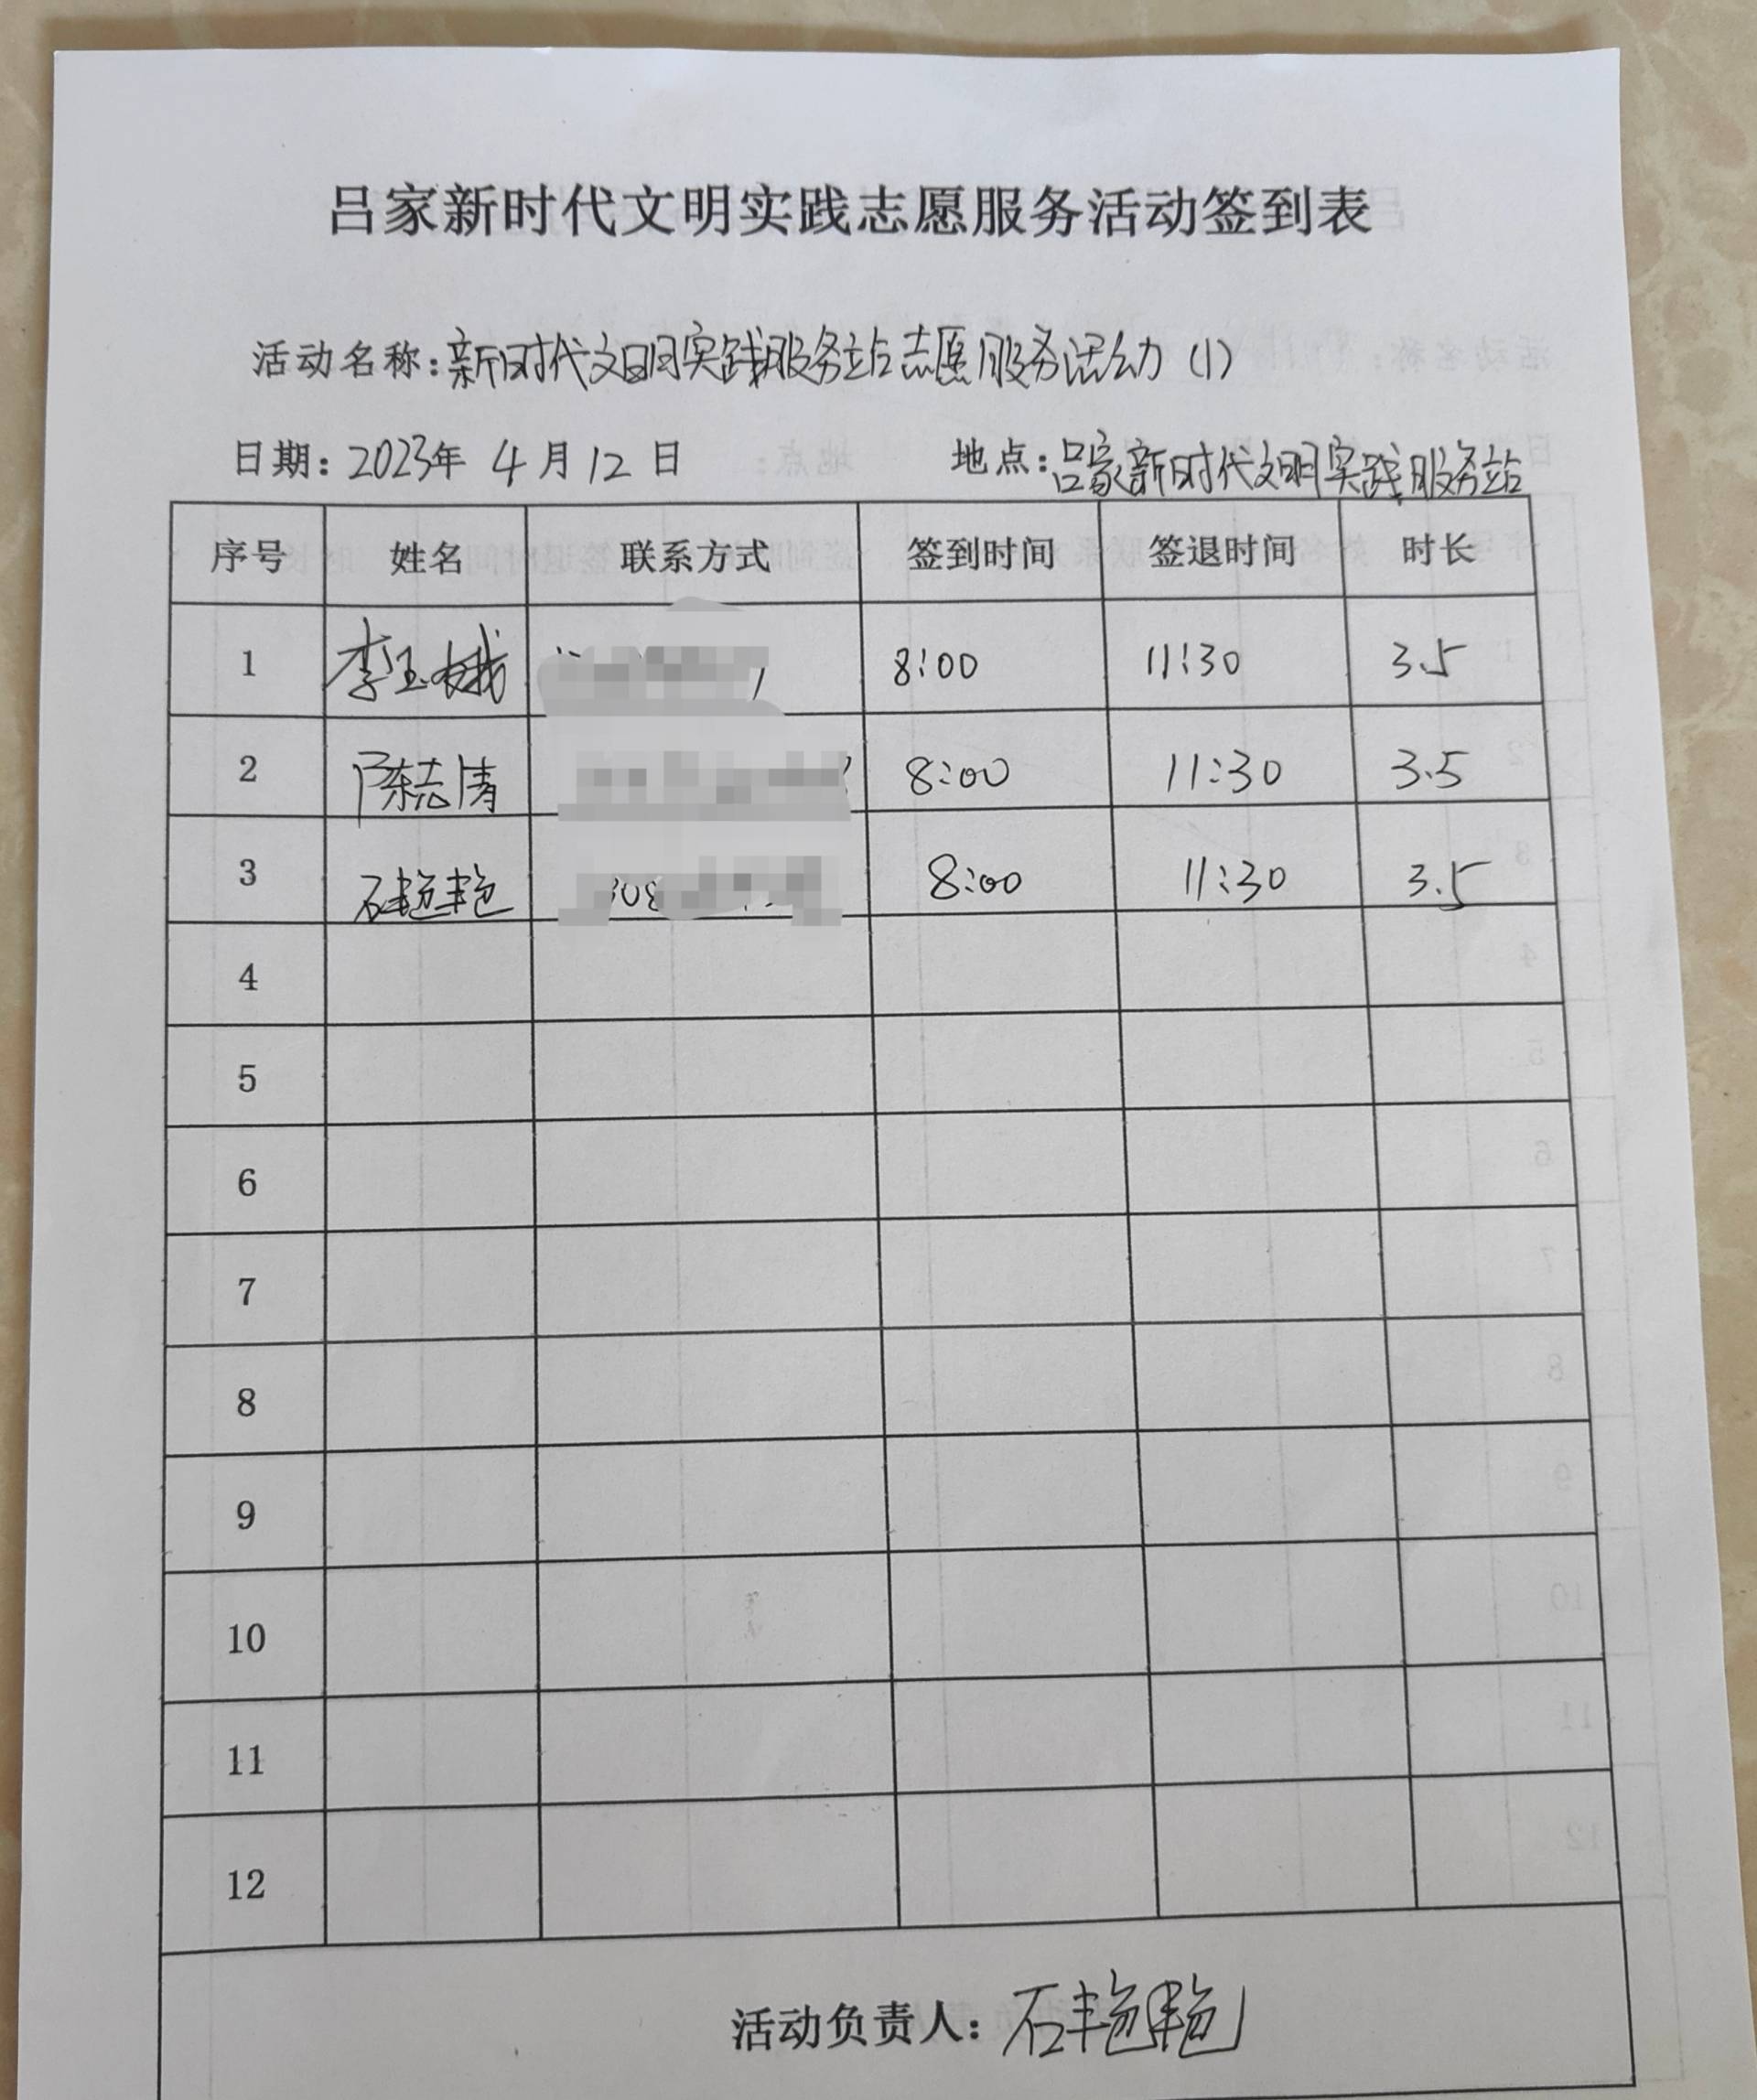 吕家新时代文明实践志愿服务活动签到表
活动名称：新时代文明实践服务站志愿服务活动（1）
日期：2023年 4月12日 地点：吕家新时代文明实践服务站
序号 姓名 联系方式 签到时间 签退时间 时长
1 李玉娥 8:00 11:30 3.5
2 陈志清 8:00 11:30 3.5
3 石艳艳 8:00 11:30 3.5
4
5
6
7
8
9
10
11
12
活动负责人：石艳艳